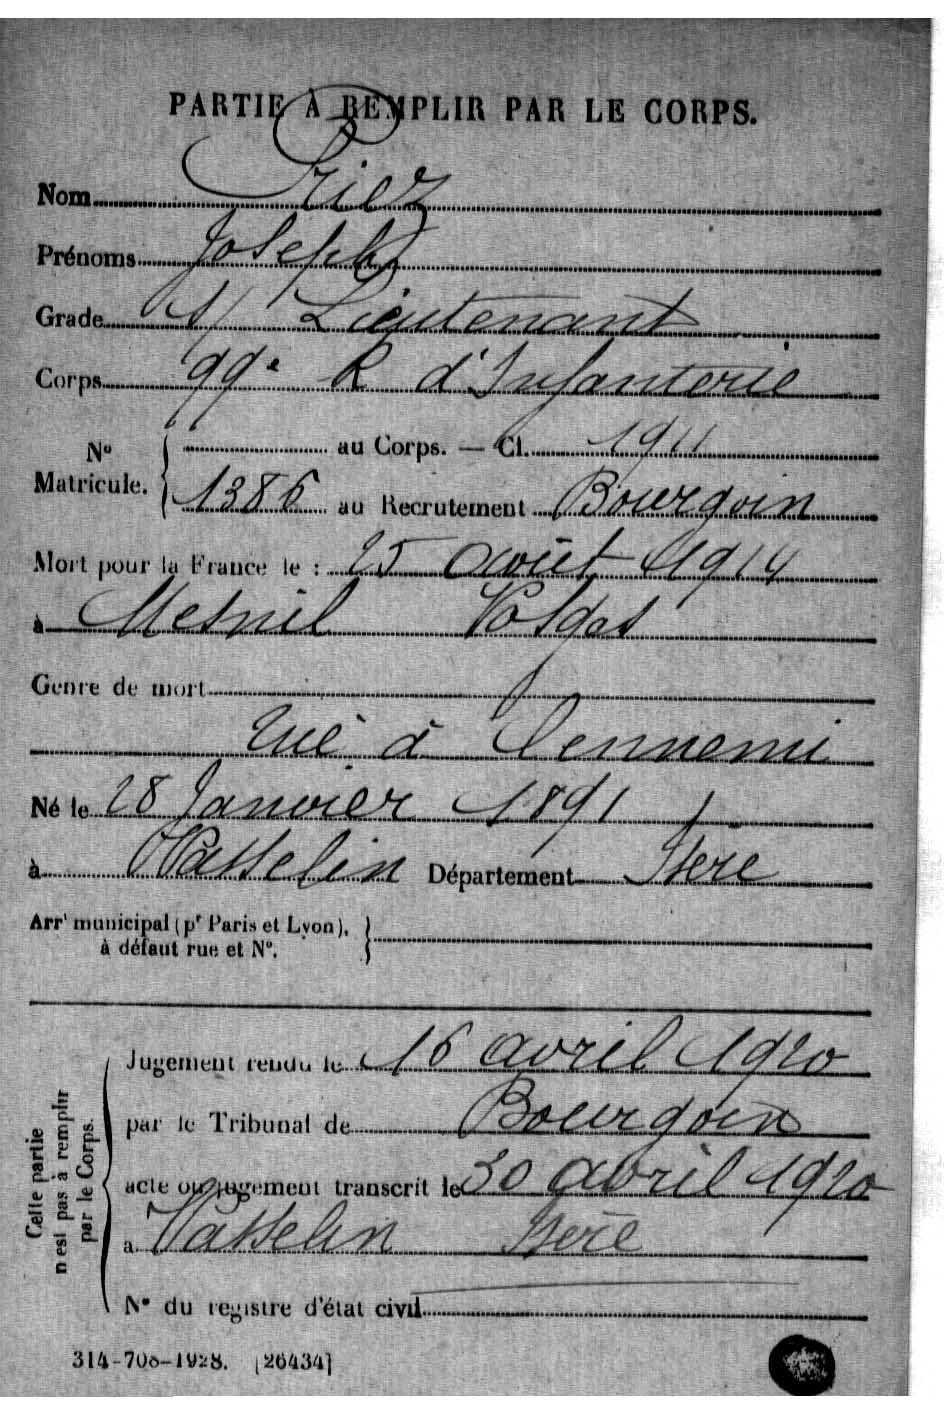 PARTIE À REMPLIR PAR LE CORPS.
Nom Priez
Prénoms Joseph
Grade S/ Lieutenant
Corps 99e R d'Infanterie
No Matricule. { au Corps. — Cl. 1911
1386 au Recrutement Bourgoin
Mort pour la France le : 25 août 1914
à Mesnil Vosges
Genre de mort
Tué à l'ennemi
Né le 28 Janvier 1891
à Vasselin Département Isère
Arrt municipal (pr Paris et Lyon), }
à défaut rue et No.
Cette partie n'est pas à remplir par le Corps.
Jugement rendu le 16 avril 1920
par le Tribunal de Bourgoin
acte ou jugement transcrit le 30 avril 1920
à Vasselin Isère
No du registre d'état civil
314-708-1928. [26434]